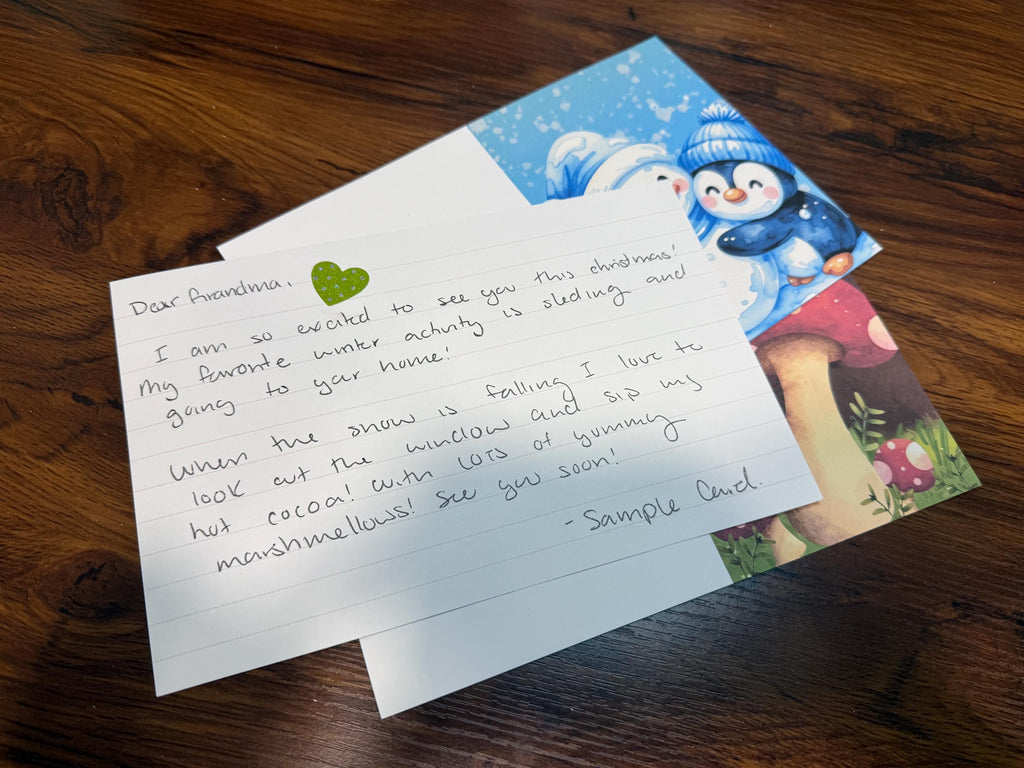 Dear Grandma,
I am so excited to see you this christmas!
My favorite winter activity is sleding and
going to your home!
When the snow is falling I love to
look out the window and sip my
hot cocoa! with LOTS of yummy
marshmellows! See you soon!
- Sample Card.